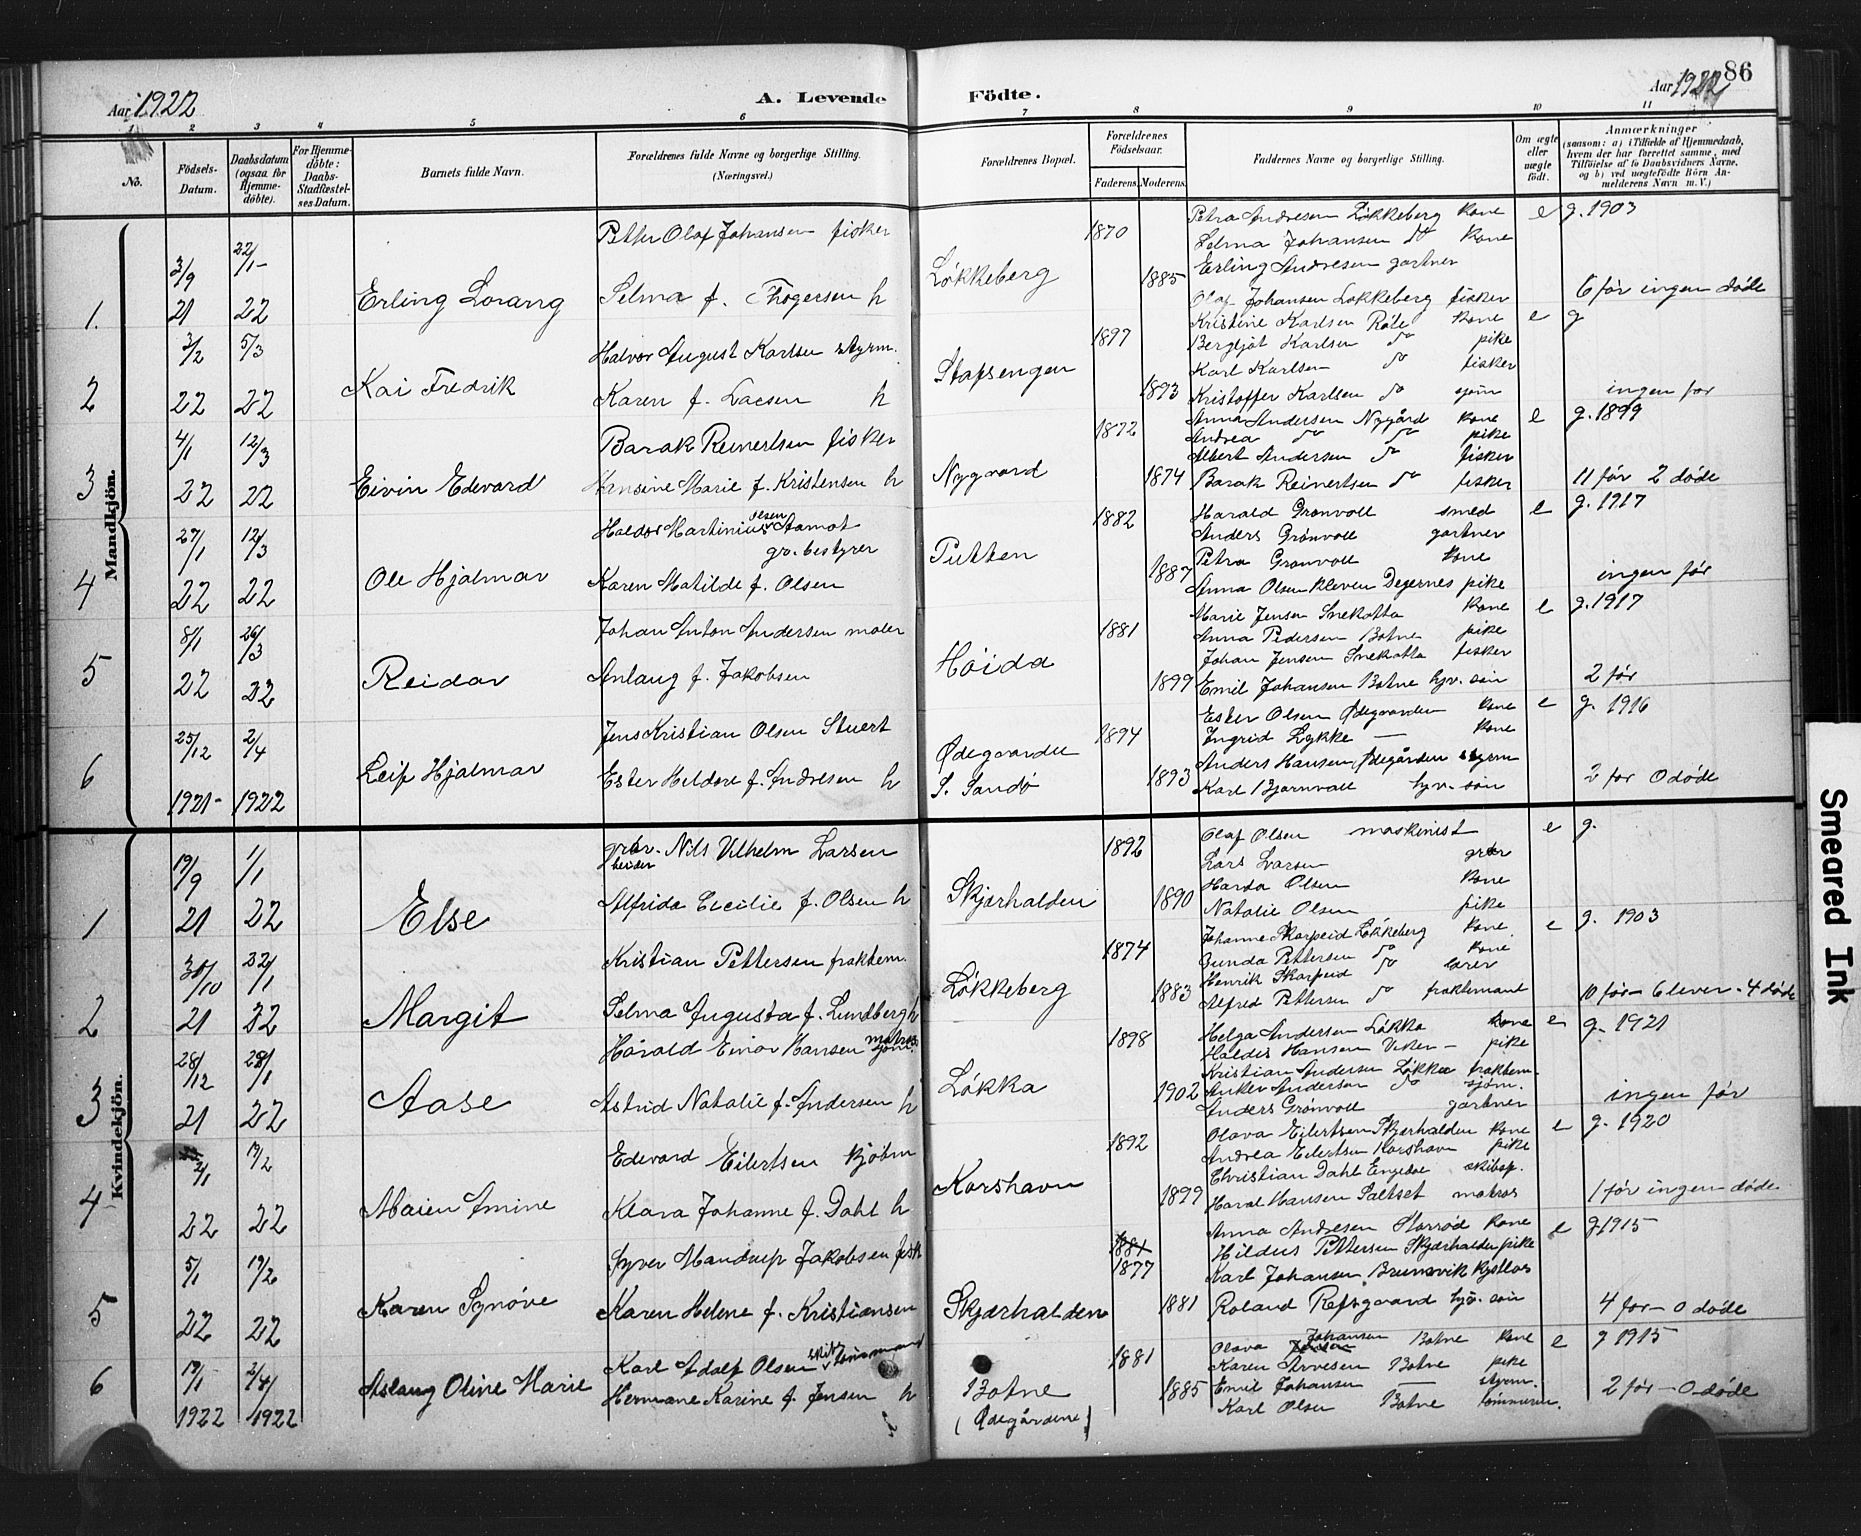 Aar 1922
A. Levende Födte.
Aar 1922
86
1 2 3 4 5 6 7 8 9 10 11
No.
Födsels-Datum.
Daabsdatum (ogsaa for Hjemme-döbte).
For Hjemme-döbte: Daabs-Stadfæstel-ses Datum.
Barnets fulde Navn.
Forældrenes fulde Navne og borgerlige Stilling. (Næringsvei.)
Forældrenes Bopæl.
Forældrenes Födselsaar.
Faderens. Moderens.
Faddernes Navne og borgerlige Stilling.
Om ægte eller uægte födt.
Anmærkninger
(saasom: a) i Tilfælde af Hjemmedaab, hvem der har forrettet samme, med Tilföielse af to Daabsvidners Navne, og b) ved uægtefödte Börn An-melderens Navn m. V.)
Mandkjön.
1. 3/9 21 22/1- 22 Erling Lorang
Petter Olaf Johansen fisker
Selma f. Thogersen h
Løkkeberg 1870 1885
Petra Andresen Løkkeberg kone e g. 1903
Selma Johansen do kone
Erling Andresen gartner
Olaf Johansen Løkkeberg fisker 6 før ingen døde
2 3/2 22 5/3 22 Kai Fredrik
Halvor August Karlsen styrm.
Karen f. Larsen h
Stafsengen 1897 1893
Kristine Karlsen Röte kone e g
Bergljot Karlsen do pike
Karl Karlsen do fisker
Kristoffer Karlsen do sjöm ingen før
3 4/1 22 12/3 22 Eivin Edevard
Barak Reinertsen fisker
Hansine Marie f. Kristensen h
Nygaard 1872 1874
Anna Andersen Nygård kone e g. 1899
Andrea do do pike
Albert Andersen do fisker
Barak Reinertsen do fisker 11 før 2 døde
4 27/1 22 12/3 22 Ole Hjalmar
Haldor Martinius Olsen Aamot
gr. bestyrer
Karen Matilde f. Olsen
Putten 1882 1887
Harald Grønvoll smed e g. 1917
Anders Grønvoll gartner
Petra Grønvoll kone
Anna Olsen Kleven Degernes pike ingen før
5 8/1 22 26/3 22 Reidar
Johan Anton Andersen maler
Anlaug f. Jakobsen
Høida 1881 1899
Marie Jensen Snekotta kone e g. 1917
Anna Pedersen Botne pike
Johan Jensen Snekotta fisker
Emil Johansen Botne hjv. søn 2 før
6 25/12 1921- 2/4 1922 Leif Hjalmar
Jens Kristian Olsen Stuert
Ester Heldore f. Andresen h
Ødegaarden
S. Sandø 1894 1893
Ester Olsen Ødegaarden kone e g. 1916
Ingrid Lykke — kone
Anders Hansen Ødegården styrm
Karl Bjørnvall hjv. søn 2 før 0 døde
Kvindekjön.
1 19/9 21 1/1 22 Else
grbr. Nils Vilhelm Larsen
Alfrida Cecilie f. Olsen h
Skjærhalden 1892 1890
Olaf Olsen maskinist e g.
Lars Larsen grbr
Harda Olsen kone
Natalie Olsen pike
2 30/10 21 22/1 22 Margit
Kristian Pettersen fraktem.
Selma Augusta f. Lundberg h
Løkkeberg 1874 1883
Johanne Skarpeid Løkkeberg kone e g. 1903
Gunda Pettersen do kone
Henrik Skarpeid do lærer
Alfred Pettersen do fraktemand 10 før - 6 lever - 4 døde
3 28/12 21 29/1 22 Aase
Harald Einar Hansen matros
Astrid Natalie f. Andersen h
Løkka 1898 1902
Helga Andersen Løkka kone e g. 1921
Haldis Hansen Viker — pike
Kristian Andersen Løkka fraktem.
Anker Andersen do sjøm.
Anders Grønvoll gartner ingen før
4 2/1 22 19/2 22 Maien Amine
Edevard Eilertsen kjøbm
Klara Johanne f. Dahl h
Korshavn 1892 1899
Olava Eilertsen Skjærhalden kone e g. 1920
Andrea Eilertsen Korshavn pike
Christian Dahl Engedal skibsf.
Haral Hansen Saltset matros 1 før ingen døde
5 5/1 22 19/2 22 Karen Synøve
Syver Mandrup Jakobsen fisk
Karen Helene f. Kristiansen
Skjærhalden 1881 1877 1881
Anna Andresen Storrød kone e g 1915
Hildus Pettersen Skjærhalden pike
Karl Johansen Brunsvik kystlos
Roland Refsgaard hjv. søn 4 før - 0 døde
6 19/1 1922 2/4 1922 Aslaug Oline Marie
Karl Adolf Olsen skibstømmermand
Hermane Karine f. Jensen h
Botne
(Ødegårdene) 1881 1885
Olava Johansen Botne kone e g 1915
Karen Arvesen Botne pike
Emil Johansen — styrm.
Karl Olsen Botne tømmerm. 2 før - 0 døde
Smeared Ink